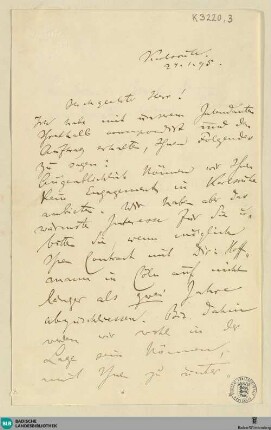 K 3220,3
Karlsruhe.
27.1.95.
Hochgeehrter Herr!
Ich habe mit unserem Intendanten
correspondirt und den
Auftrag erhalten, Ihnen Folgendes
zu sagen:
Augenblicklich können wir Ihnen
kein Engagement in Karlsruhe
anbieten. Wir haben aber das
wärmste Interesse für Sie u.
bitten Sie wenn möglich
Ihren Contract mit Dir. Hoff-
mann in Cöln auf nicht
länger als zwei Jahre
abzuschliessen. Bis dahin
werden wir wohl in der
Lage sein können,
mit Ihnen zu unter-
BLB BADISCHE
LANDESBIBLIOTHEK
Baden-Württemberg